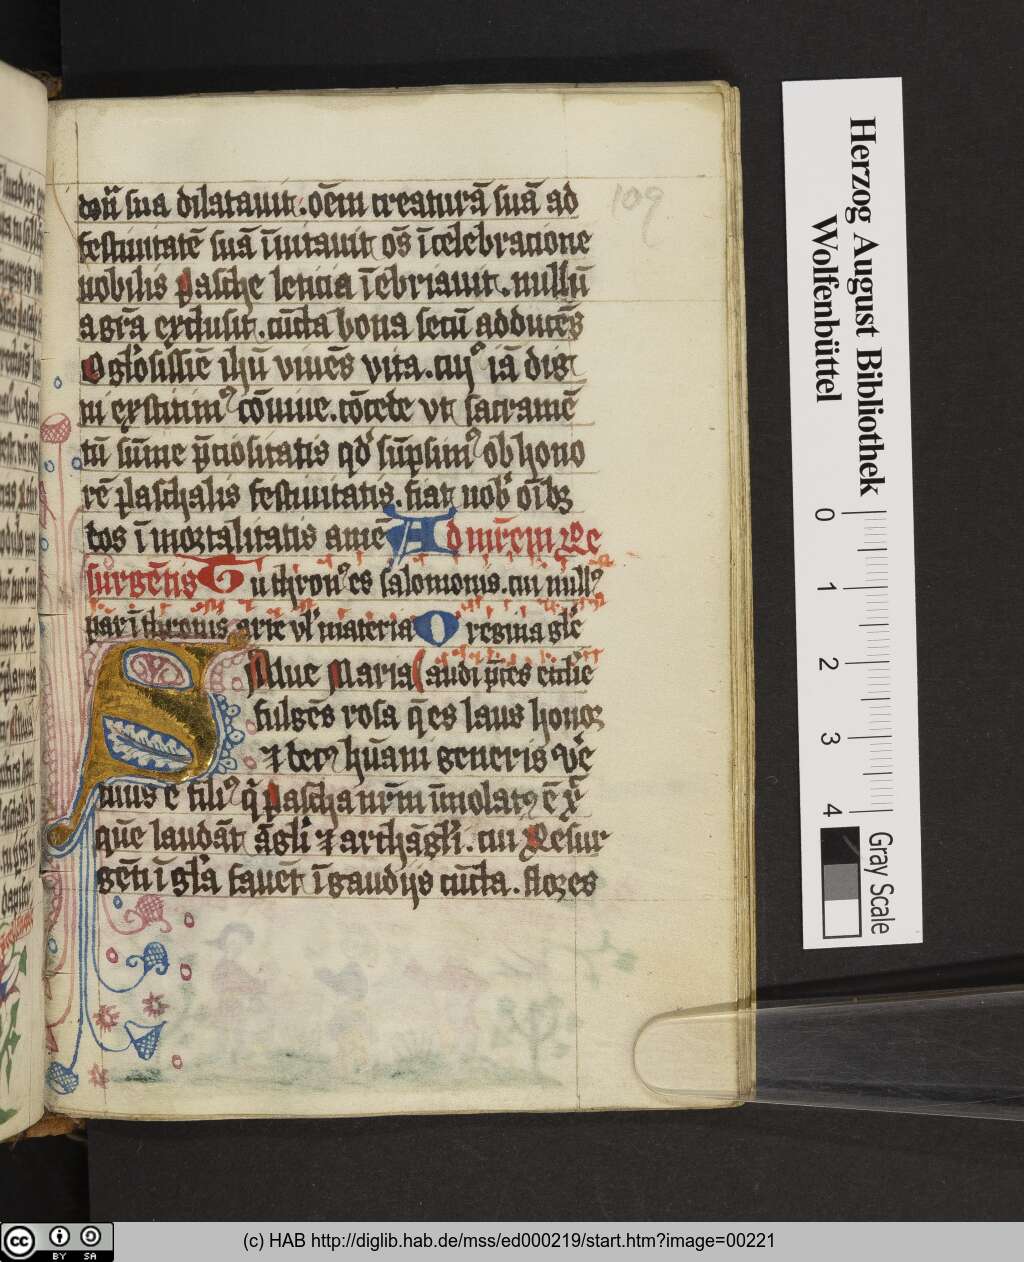 donū sua dilatauit. oēm creaturā suā ad
festiuitatē suā īuitauit os̄ ī celebracione
nobilis pasche leticia īebriauit. nullū
a gr̄a exclusit. cūcta bona secū adducēs
O glo̓sissīe ihū viuēs vita. cuiꝰ iā dig
ni exstitimꝰ cōuiue. cōcede vt sacramē
tū sūme p̄ciositatis qd̓ sūpsimꝰ ob hono
rē paschalis festiuitatis. fiat nob̓ oīb
dos īmortalitatis amē Ad mr̄em Re
surgētis Tu thronꝰ es salomonis. cui nullꝰ
par ī thronis arte vl̓ materia O regina gl̓e
Aue Maria audi p̄ces ecclīe
fulgēs rosa q̄ es laus honor
⁊ decꝰ hūani generis
niꝰ ē filiꝰ q̄ pascha nr̄m īmolatꝰ ē xp̄
quē laudāt āgli ⁊ archāgli. cui Resur
gēti ī gl̓a fauēt ī gaudijs cūcta. flores
109
Herzog August Bibliothek
Wolfenbüttel
0 1 2 3 4
Gray Scale
cc BY SA
(c) HAB http://diglib.hab.de/mss/ed000219/start.htm?image=00221